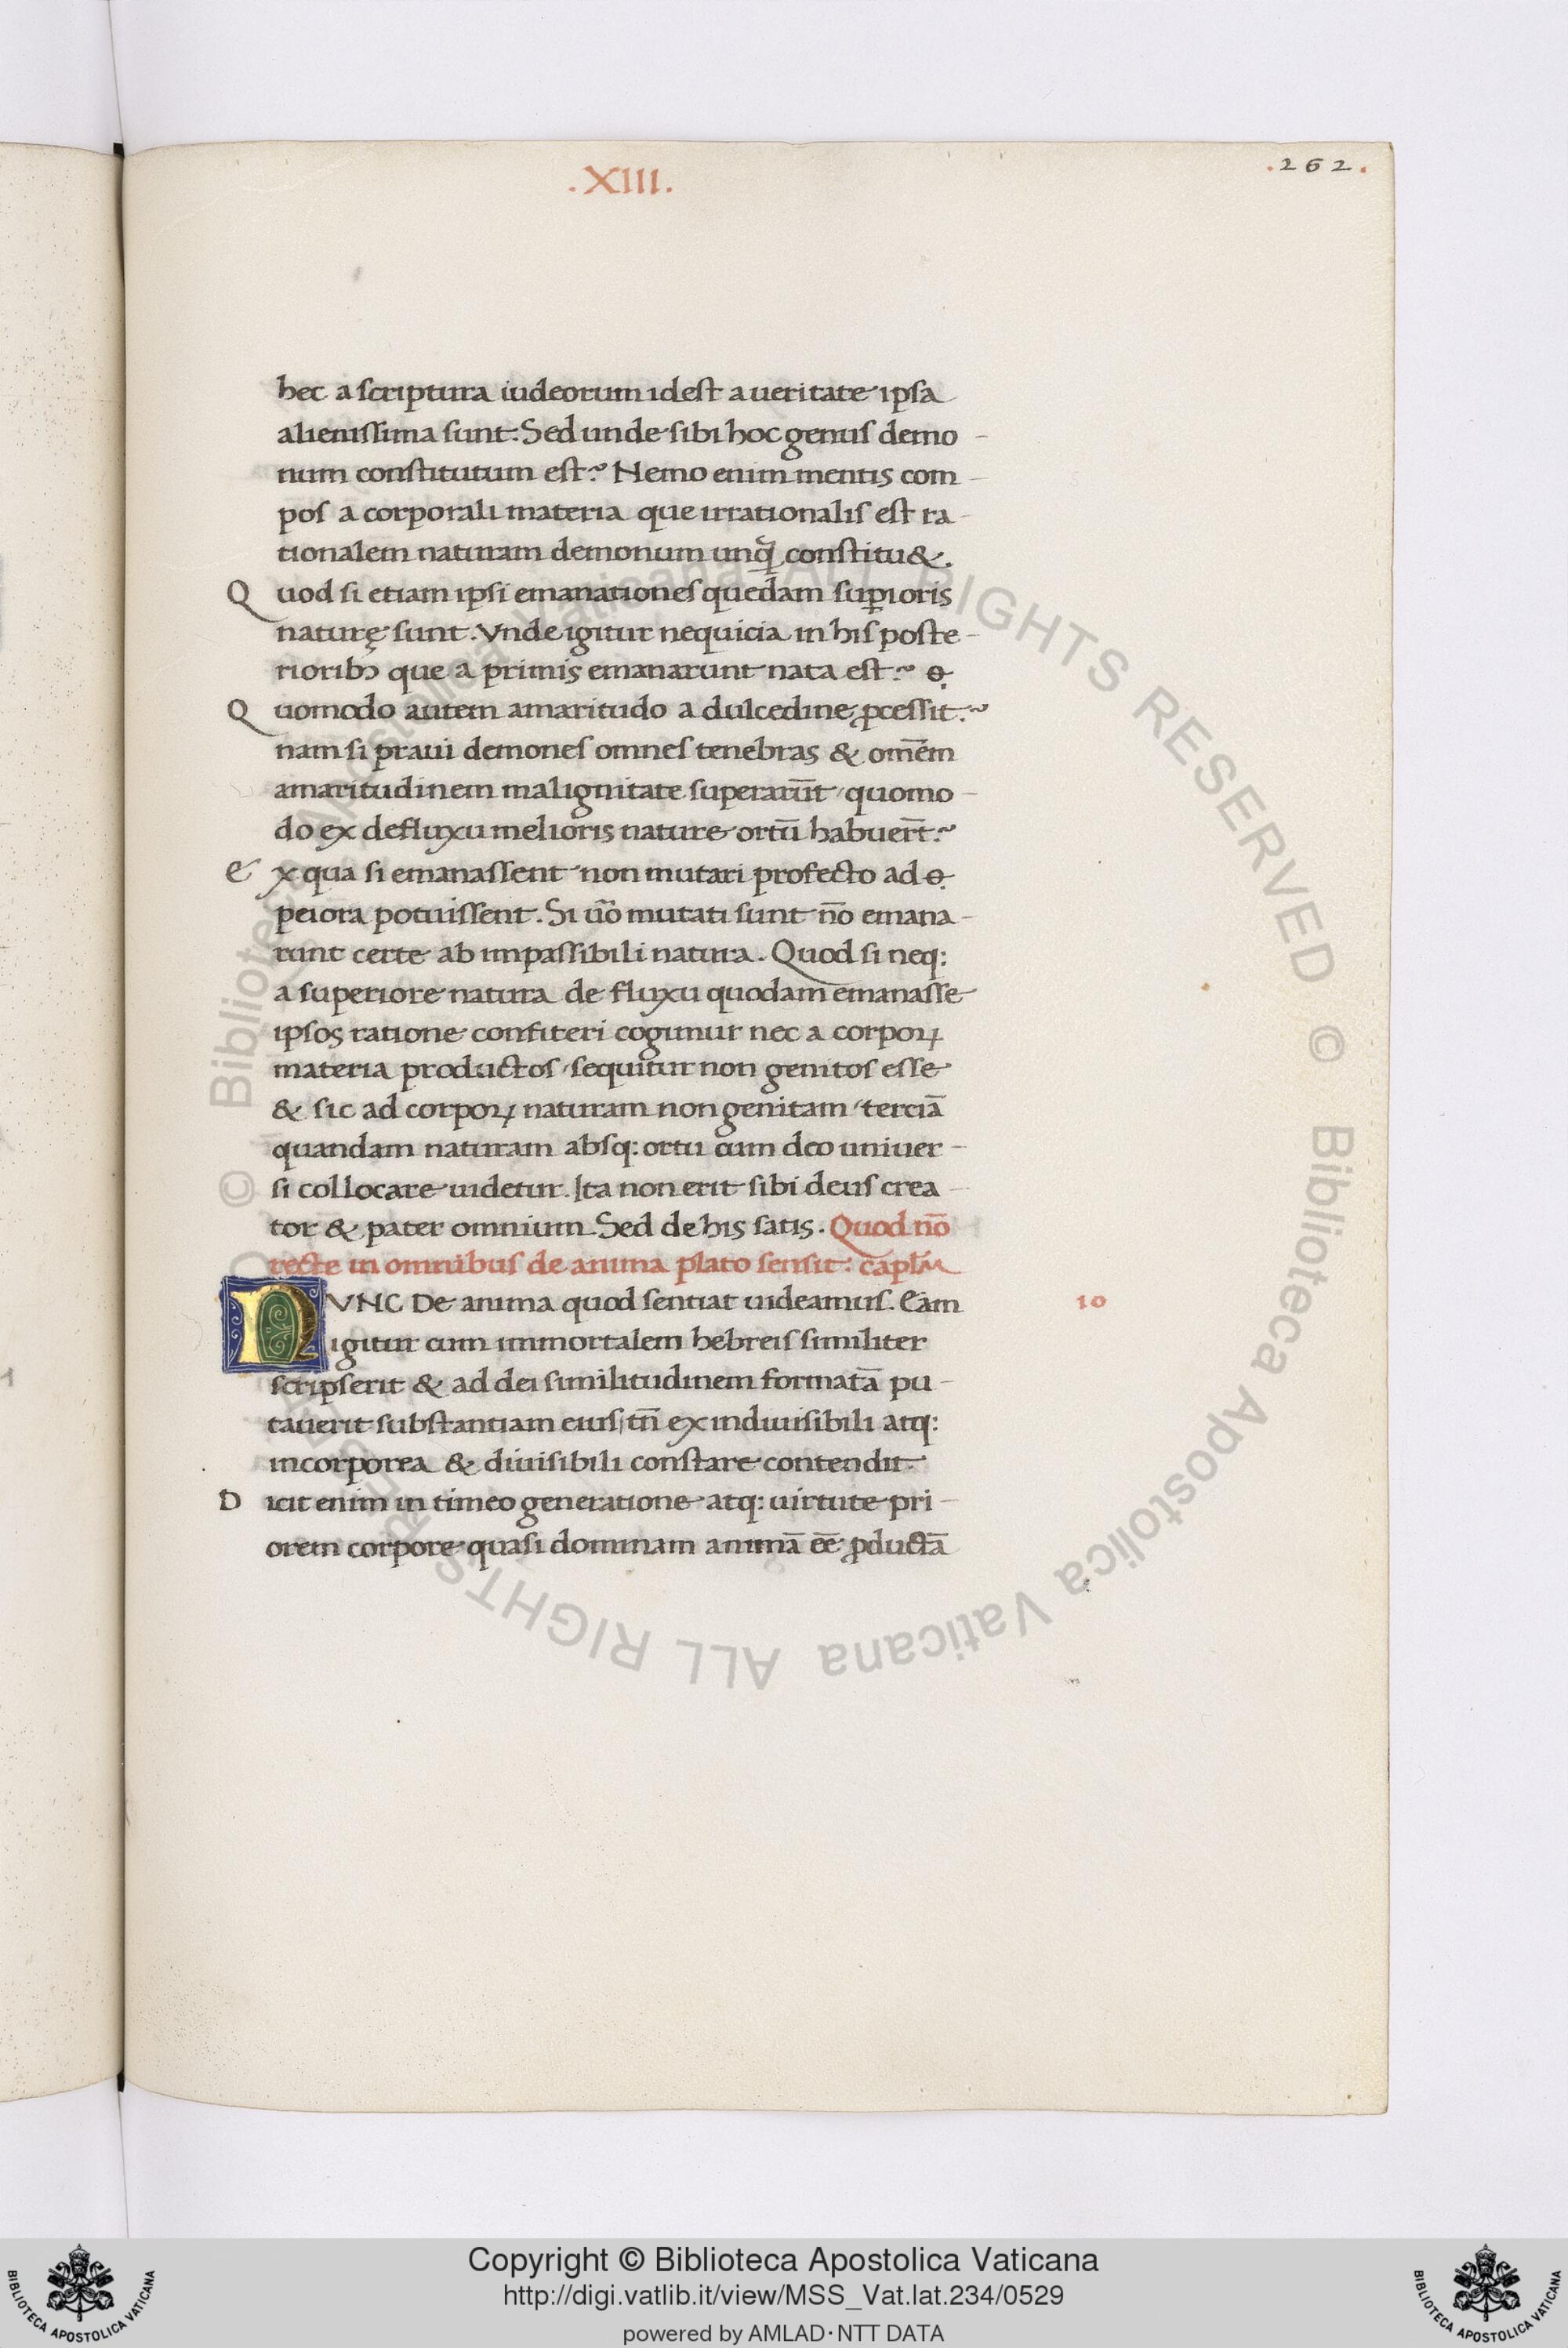 .XIII.
.262.
hec a scriptura iudeorum idest a ueritate ipsa
alienissima sunt: Sed unde sibi hoc genus demo-
num constitutum est? Nemo enim mentis com-
pos a corporali materia que irrationalis est ra-
tionalem naturam demonum unq̃ constitu&.
Quod si etiam ipsi emanationes quedam suꝑioris
naturę sunt. Vnde igitur nequicia in his poste-
rioribꝫ que a primis emanarunt nata est?
Quomodo autem amaritudo a dulcedine ꝓcessit?
nam si praui demones omnes tenebras & om̄em
amaritudinem malignitate superarūt / quomo-
do ex defluxu melioris nature ortū habuer̄t?
ex qua si emanassent non mutari profecto ad
peiora potuissent. Si ūo mutati sunt nō emana-
runt certe ab impassibili natura. Quod si neq:
a superiore natura de fluxu quodam emanasse
ipsos ratione confiteri cogimur nec a corpoꝝ
materia productos / sequitur non genitos esse
& sic ad corpoꝝ naturam non genitam / terciā
quandam naturam absq: ortu cum deo uniuer-
si collocare uidetur. Ita non erit sibi deus crea-
tor & pater omnium. Sed de his satis. Quod nō
recte in omnibus de anima plato sensit: capl̄m
NVNC De anima quod sentiat uideamus. Eam
10
igitur cum immortalem hebreis similiter
scripserit & ad dei similitudinem formatā pu-
tauerit substantiam eius / tn̄ ex indiuisibili atq:
incorporea & diuisibili constare contendit.
Dicit enim in timeo generatione atq: uirtute pri-
orem corpore quasi dominam animā eē ꝓductā
© Biblioteca Apostolica Vaticana ALL RIGHTS RESERVED © Biblioteca Apostolica Vaticana ALL RIGHTS
Copyright © Biblioteca Apostolica Vaticana
http://digi.vatlib.it/view/MSS_Vat.lat.234/0529
powered by AMLAD·NTT DATA
BIBLIOTECA APOSTOLICA VATICANA
BIBLIOTECA APOSTOLICA VATICANA